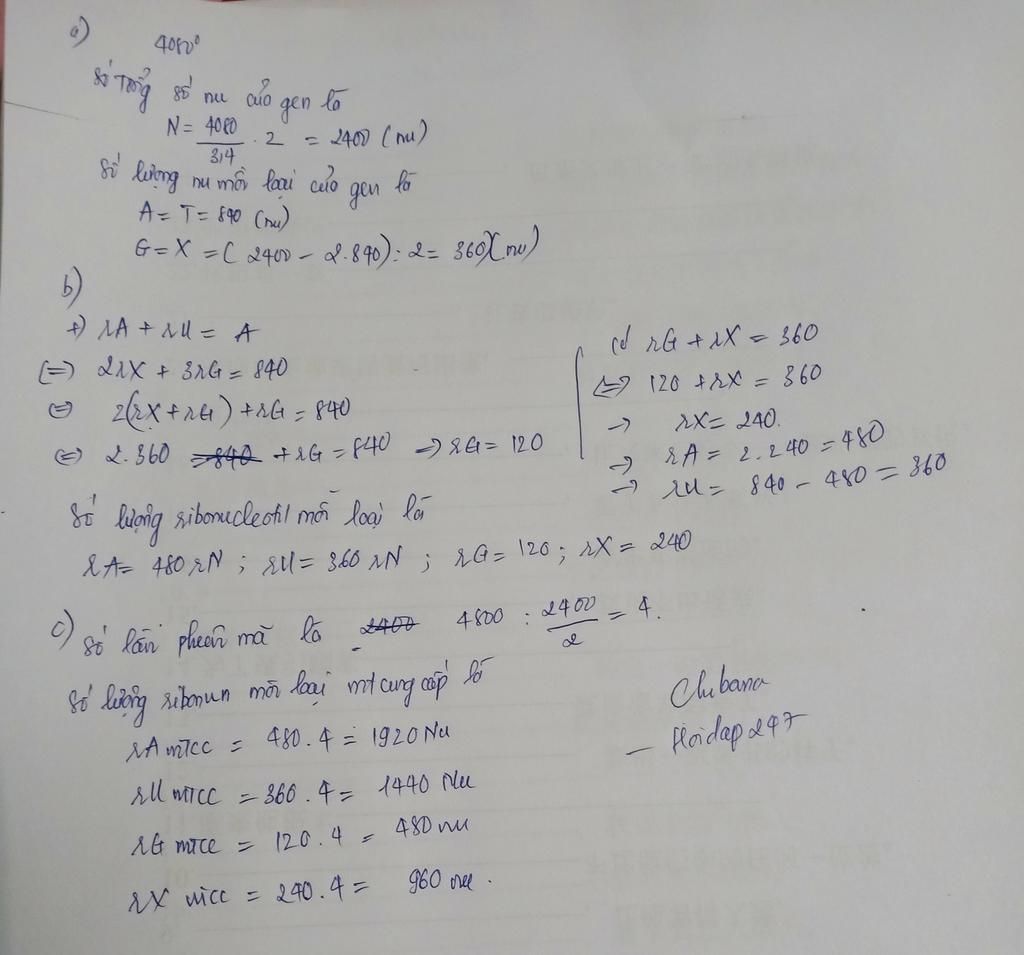 a)
4080⁰
Số Tổng số nu của gen là
N = 4080/3,4 . 2 = 2400 (nu)
Số lượng nu mỗi loại của gen là
A = T = 840 (nu)
G = X = ( 2400 - 2.840) : 2 = 360 (nu)
b)
+) rA + rU = A
(=) 2rX + 3rG = 840
(=) 2(rX + rG) + rG = 840
(=) 2.360 =840 + rG = 840 → rG = 120
có rG + rX = 360
(=) 120 + rX = 360
→ rX = 240.
→ rA = 2.240 = 480
→ rU = 840 - 480 = 360
Số lượng ribonucleotit mỗi loại là
rA = 480 rN ; rU = 360 rN ; rG = 120 ; rX = 240
c) Số lần phiên mã là 2400 4800 : 2400/2 = 4.
Số lượng ribonun mỗi loại mt cung cấp là
rA mtcc = 480.4 = 1920 Nu
rU mtcc = 360.4 = 1440 Nu
rG mtcc = 120.4 = 480 nu
rX mtcc = 240.4 = 960 nu.
Chibana
- Hoidap247